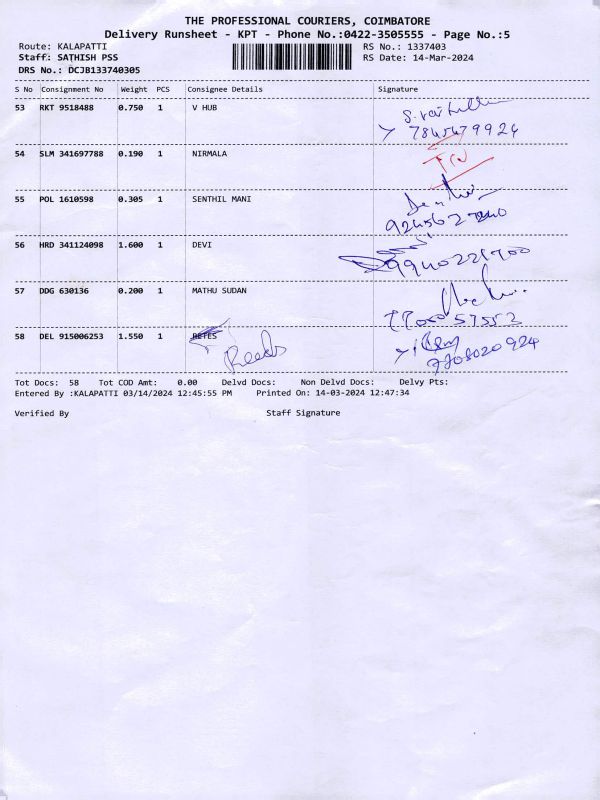 THE PROFESSIONAL COURIERS, COIMBATORE
Delivery Runsheet - KPT - Phone No.:0422-3505555 - Page No.:5
Route: KALAPATTI RS No.: 1337403
Staff: SATHISH PSS RS Date: 14-Mar-2024
DRS No.: DCJB133740305
S No Consignment No Weight PCS Consignee Details Signature
53 RKT 9518488 0.750 1 V HUB
54 SLM 341697788 0.190 1 NIRMALA
55 POL 1610598 0.305 1 SENTHIL MANI
56 HRD 341124098 1.600 1 DEVI
57 DDG 630136 0.200 1 MATHU SUDAN
58 DEL 915006253 1.550 1 Reeds
7708020924
Tot Docs: 58 Tot COD Amt: 0.00 Delvd Docs: Non Delvd Docs: Delvy Pts:
Entered By :KALAPATTI 03/14/2024 12:45:55 PM Printed On: 14-03-2024 12:47:34
Verified By Staff Signature